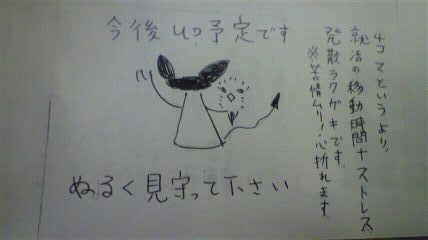 今後up予定です
4コマというより、
就活の移動時間+ストレス
発散ラクガキです。
※苦情ムリ!心折れます
ぬるく見守って下さい